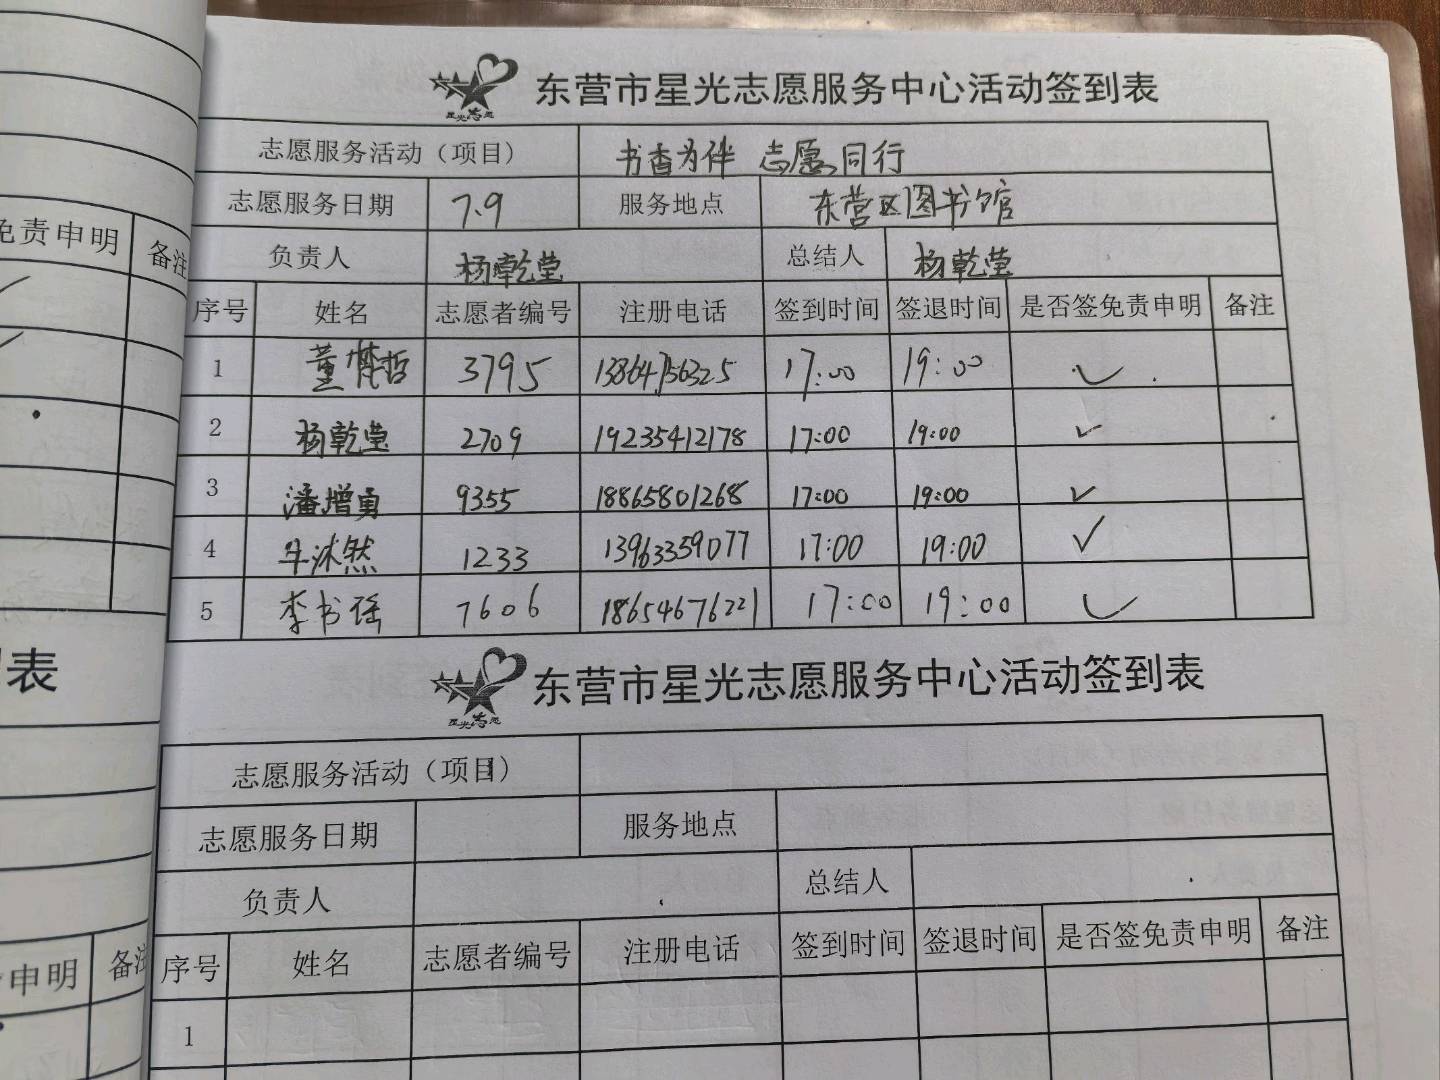 东营市星光志愿服务中心活动签到表
星光志愿
志愿服务活动（项目） 书香为伴 志愿同行
志愿服务日期 7.9 服务地点 东营区图书馆
负责人 杨乾莹 总结人 杨乾莹
序号 姓名 志愿者编号 注册电话 签到时间 签退时间 是否签免责申明 备注
1 董梵哲 3795 13864756325 17:00 19:00 ✓
2 杨乾莹 2709 19235412178 17:00 19:00 ✓
3 潘增勇 9355 18865801268 17:00 19:00 ✓
4 牛沐然 1233 13963359077 17:00 19:00 ✓
5 李书瑶 7606 18654676221 17:00 19:00 ✓
东营市星光志愿服务中心活动签到表
星光志愿
志愿服务活动（项目）
志愿服务日期 服务地点
负责人 总结人
序号 姓名 志愿者编号 注册电话 签到时间 签退时间 是否签免责申明 备注
1
免责申明 备注
表
申明 备注